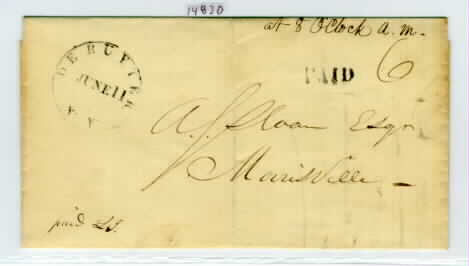 14830
at 8 OClock A.M.
6
DE RUYTER
JUNE 11
N.Y
PAID
A. S. Sloan Esqr
Morisville
paid